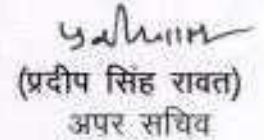 (प्रदीप सिंह रावत)
अपर सचिव